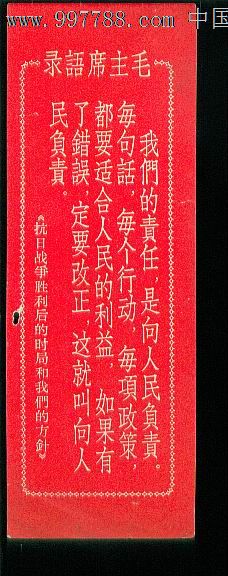 www.997788.com 中国
毛主席語录
我們的責任，是向人民負責。
每句話，每个行动，每項政策，
都要适合人民的利益，如果有
了錯誤，定要改正，这就叫向人
民負責。
《抗日战爭胜利后的时局和我們的方針》